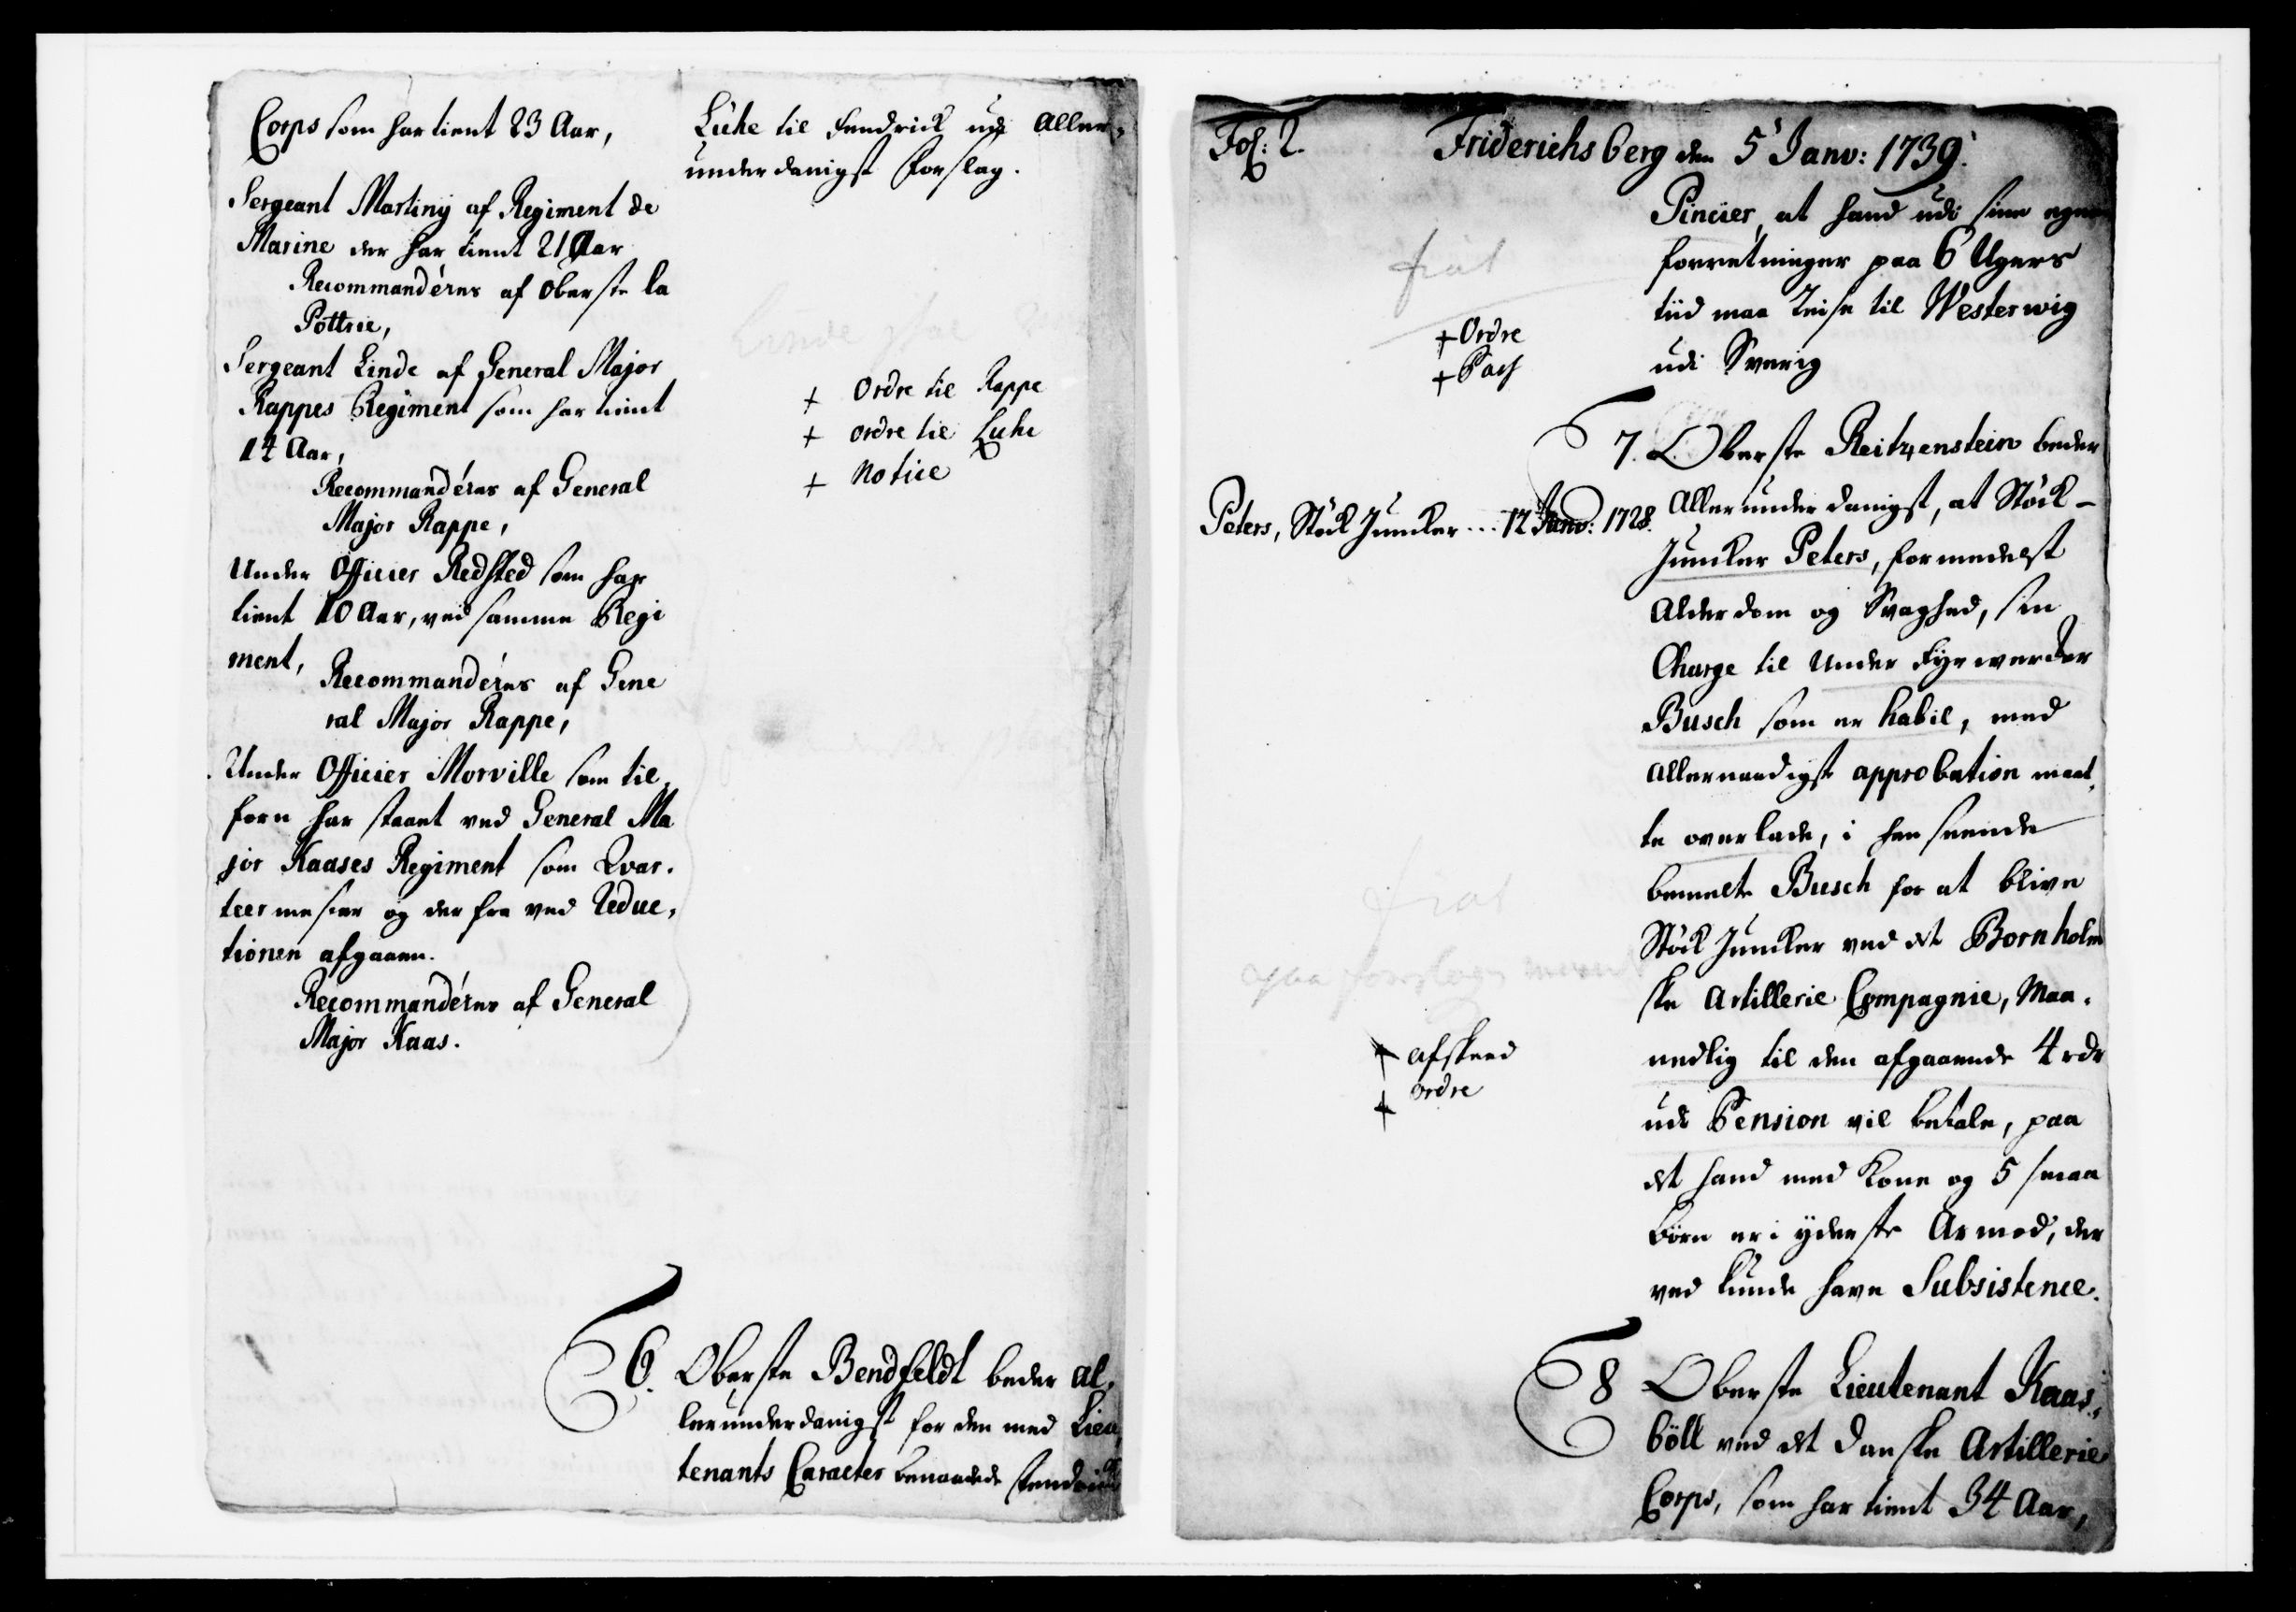 Corps som har tient 23 Aar,
Sergeant Martiny af Regiment de
Marine der har tient 21 Aar
Recommandéres af Oberste la
Pottrie,
Sergeant Linde af General Major
Rappes Regiment som har tient
14 Aar,
Recommandéres af General
Major Rappe,
Under Officier Redsted som har
tient 10 Aar, ved samme Regi
ment,
Recommandéres af Gene
ral Major Rappe,
Under Officier Morville som til,
forn har staaet ved General Ma
jor Kaases Regiment som Qvar,
teermester og derfra ved Reduc,
tionen afgaaen.
Recommandéres af General
Major Kaas.
Lühe til Fendrick udi Aller,
underdanigst Forslag.
+ Ordre til Rappe
+ ordre til Luhe
+ Notice
6. Oberste Bendfeldt beder al,
lerunderdanigst for den med Lieu,
tenants Caracter benaadede Fendrick
Fol: 2.
Friderichsberg den 5 Janv: 1739.
Pincier, at hand udi sine egne
forretninger paa 6 Ugers
tiid maa Reise til Westerwig
udi Sverig
fiat
+ Ordre
+ Pass
7. Oberste Reitzenstein beder
Allerunderdanigst, at Stöck-
Juncker Peters, formedelst
Alderdom og Svaghed, sin
Charge til Under Fyrwerder
Busch som er habil, med
allernaadigste approbation maat,
te overlade, i henseende
bemelte Busch for at blive
Stöck Juncker ved det Bornholm
ske Artillerie Compagnie, Maa,
nedlig til den afgaaende 4 rdr
udi Pension vil betale, paa
det hand med Kone og 5 smaa
börn er i yderste Armod, der
ved kunde have Subsistence.
Peters, Stöck Juncker ... 12 Janv: 1728.
fiat
+ afskeed
+ ordre
8 Oberste Lieutenant Kaas,
böll ved det danske Artillerie
Corps, som har tient 34 Aar,